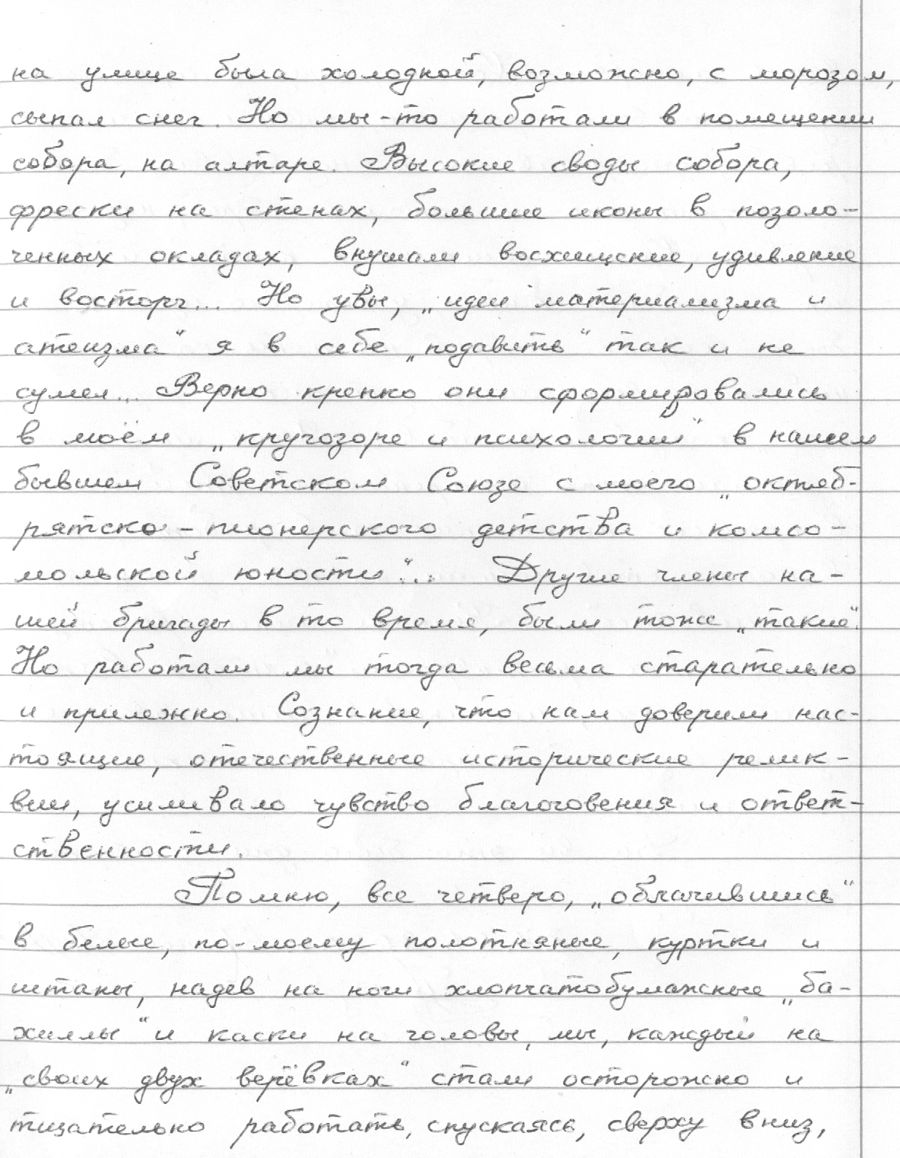 на улице была холодной, возможно, с морозом,
сыпал снег. Но мы-то работали в помещении
собора, на алтаре. Высокие своды собора,
фрески на стенах, большие иконы в позоло-
ченных окладах, внушали восхищение, удивление
и восторг... Но увы, „идеи материализма и
атеизма“ я в себе „подавить“ так и не
сумел... Верно крепко они сформировались
в моём „кругозоре и психологии“ в нашем
бывшем Советском Союзе с моего „октяб-
рятско-пионерского детства и комсо-
мольской юности“... Другие члены на-
шей бригады в то время, были тоже „такие“.
Но работали мы тогда весьма старательно
и прилежно. Сознание, что нам доверили нас-
тоящие, отечественные исторические релик-
вии, усиливало чувство благоговения и ответ-
ственности.
Помню, все четверо, „облачившись“
в белые, по-моему полотняные, куртки и
штаны, надев на ноги хлопчатобумажные „ба-
хиллы“ и каски на головы, мы, каждый на
„своих двух верёвках“ стали осторожно и
тщательно работать, спускаясь, сверху вниз,